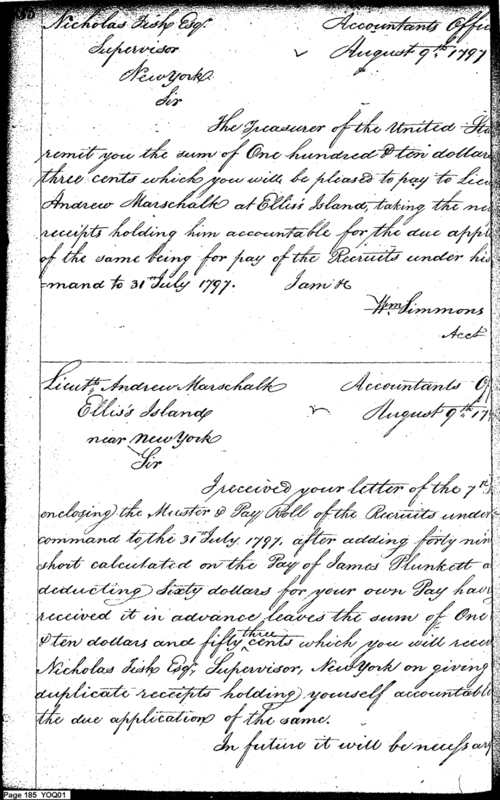 35
Nicholas Fish Esqr. Accountants Offic
Supervisor August 9th. 1797
New York
Sir
The Treasurer of the United Sta
remit you the sum of One hundred & ten dollars
three cents which you will be pleased to pay to Lieu
Andrew Marschalk at Ellis's Island, taking the ne
receipts holding him accountable for the due appl
of the same being for pay of the Recruits under his
=mand to 31st July 1797. I am &c
Wm Simmons
Acct
Lieutt. Andrew Marschalk Accountants O
Ellis's Island August 9th. 17
near New York
Sir
I received your letter of the 7th
enclosing the Muster & Pay Roll of the Recruits under
command to the 31st July 1797, after adding forty nin
short calculated on the Pay of James Plunkett a
deducting Sixty dollars for your own Pay hav
received it in advance leaves the sum of One
& ten dollars and fifty three cents which you will recei
Nicholas Fish Esqr. Supervisor, New York on giving
duplicate receipts holding yourself accountable
the due application of the same.
In future it will be necessary
Page 185 YOQ01